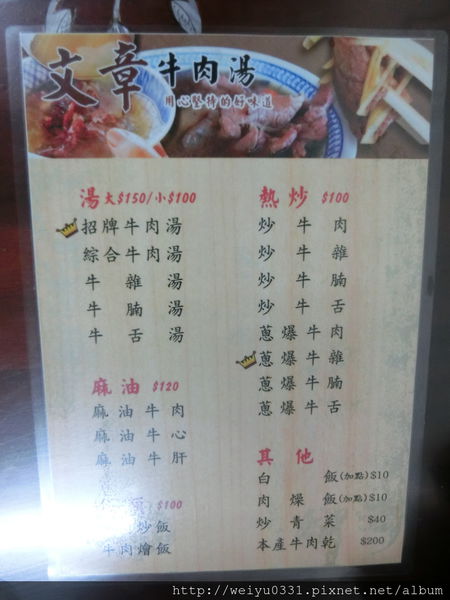 文章牛肉湯
用心堅持的好味道
湯 大$150/小$100
招牌牛肉湯
綜合牛肉湯
牛雜湯
牛腩湯
牛舌湯
麻油 $120
麻油牛肉
麻油牛心
麻油牛肝
$100
炒飯
牛肉燴飯
熱炒 $100
炒牛肉
炒牛雜
炒牛腩
炒牛舌
蔥爆牛肉
蔥爆牛雜
蔥爆牛腩
蔥爆牛舌
其他
白飯(加點)$10
肉燥飯(加點)$10
炒青菜 $40
本產牛肉乾 $200
http://weiyu0331.pixnet.net/album